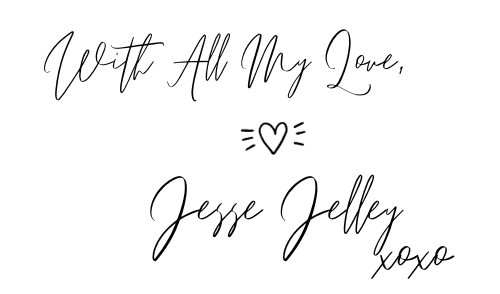 With All My Love,
Jesse Jelley
xoxo